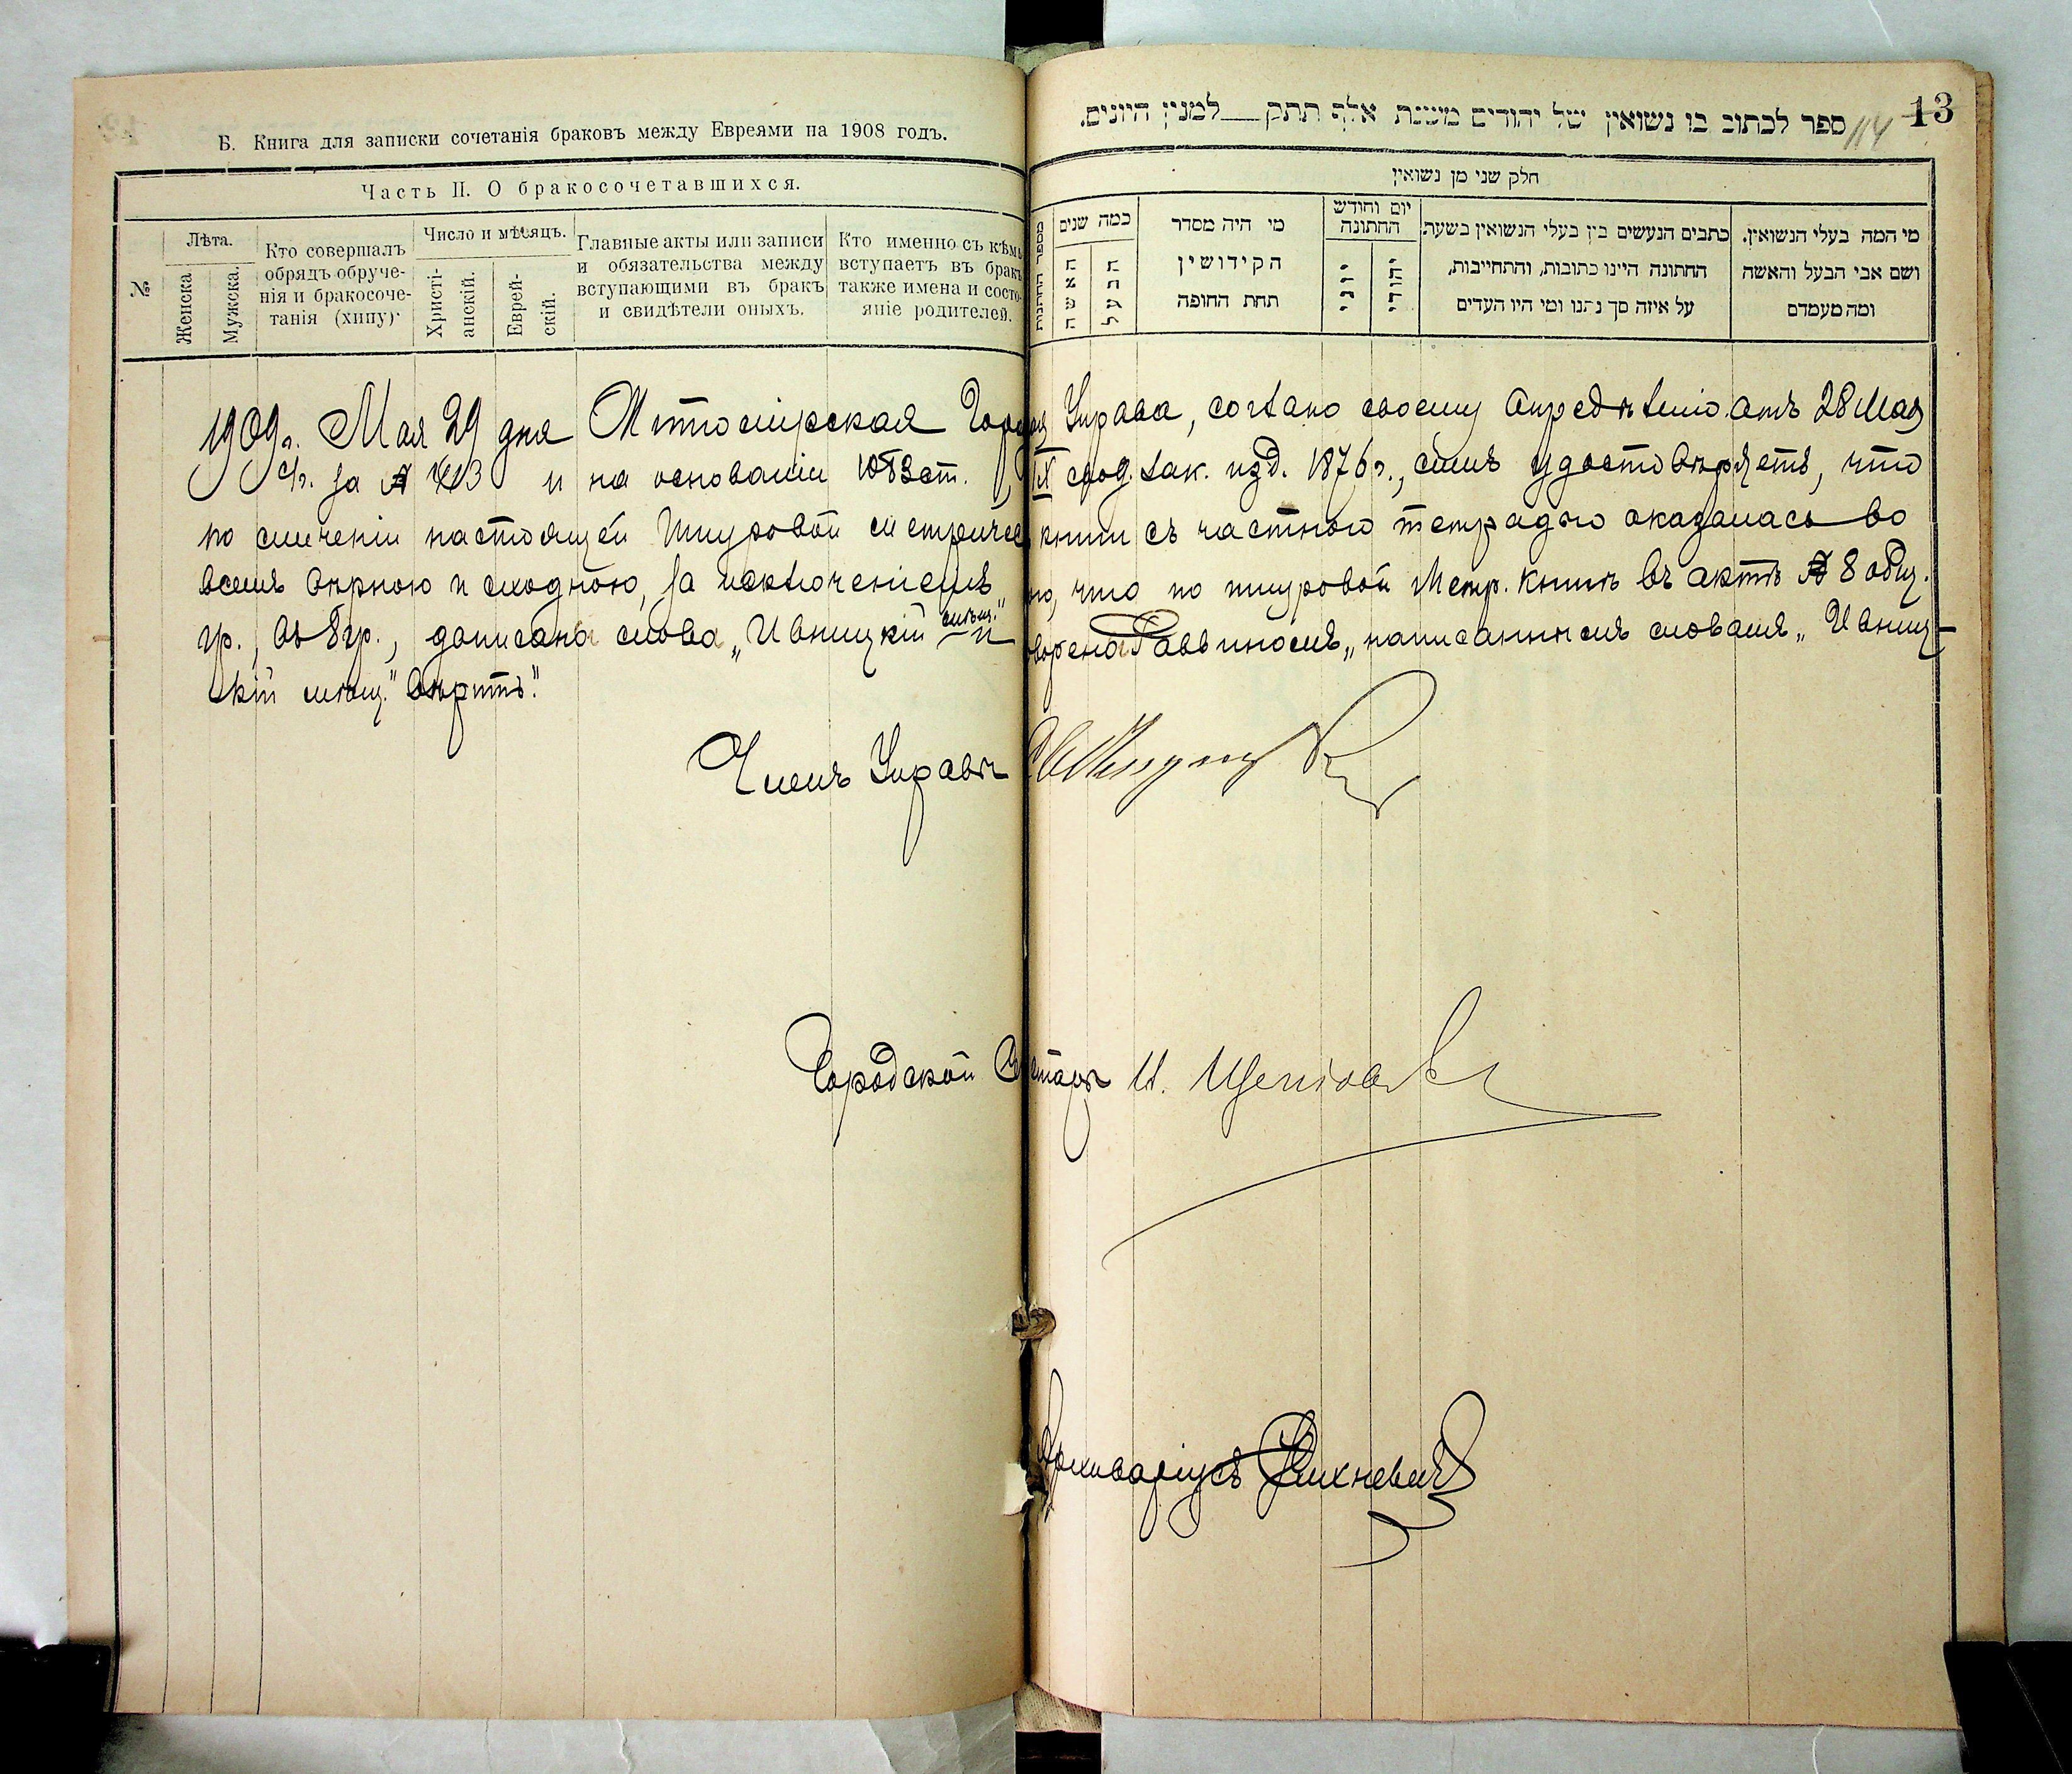 Б. Книга для записки сочетанія браковъ между Евреями на 1908 годъ.
Часть II. О бракосочетавшихся.
№
Лѣта.
Женска
Мужска.
Кто совершалъ
обрядъ обруче-
нія и бракосоче-
танія (хипу)
Число и мѣсяцъ.
Христі-
анскій.
Еврей-
скій.
Главные акты или записи
и обязательства между
вступающими въ бракъ
и свидѣтели оныхъ.
Кто именно съ кѣмъ
вступаетъ въ бракъ
также имена и состо-
яніе родителей.
13
114
ספר לכתוב בו נשואין של יהודים משנת אלף תתק___למנין היונים.
חלק שני מן נשואין
מספר החתונות
כמה שנים
האשה
הבעל
מי היה מסדר
הקידושין
תחת החופה
יום וחודש
החתונה
יוני
יהודי
כתבים הנעשים בין בעלי הנשואין בשעת
החתונה היינו כתובות, והתחייבות,
על איזה סך נתנו ומי היו העדים
מי המה בעלי הנשואין.
ושם אבי הבעל והאשה
ומה מעמדם
1909 г. Мая 29 дня Житомірская Город Управа, соглано своему опредѣленію отъ 28 Мая
с/г. за № и на основаніи 1083 ст. IX свод. зак. изд. 1876 г., симъ удостовѣряетъ, что
по сличеніи настоящей шнуровой метричес книги съ частною тетрадью оказалась во
всемъ вѣрною и сходною, за исключеніемъ но, что по шнуровой Метр. книгѣ въ актѣ № 8 общ.
гр., въ 8 гр., дописана слова „Ивницкій мѣщ." и ворено Раввиномъ „написаннымъ словамъ „Ивниц-
кій мѣщ." вѣрить".
Членъ Управы
Городской Секретарь И.
Архиваріусъ Вихневичъ